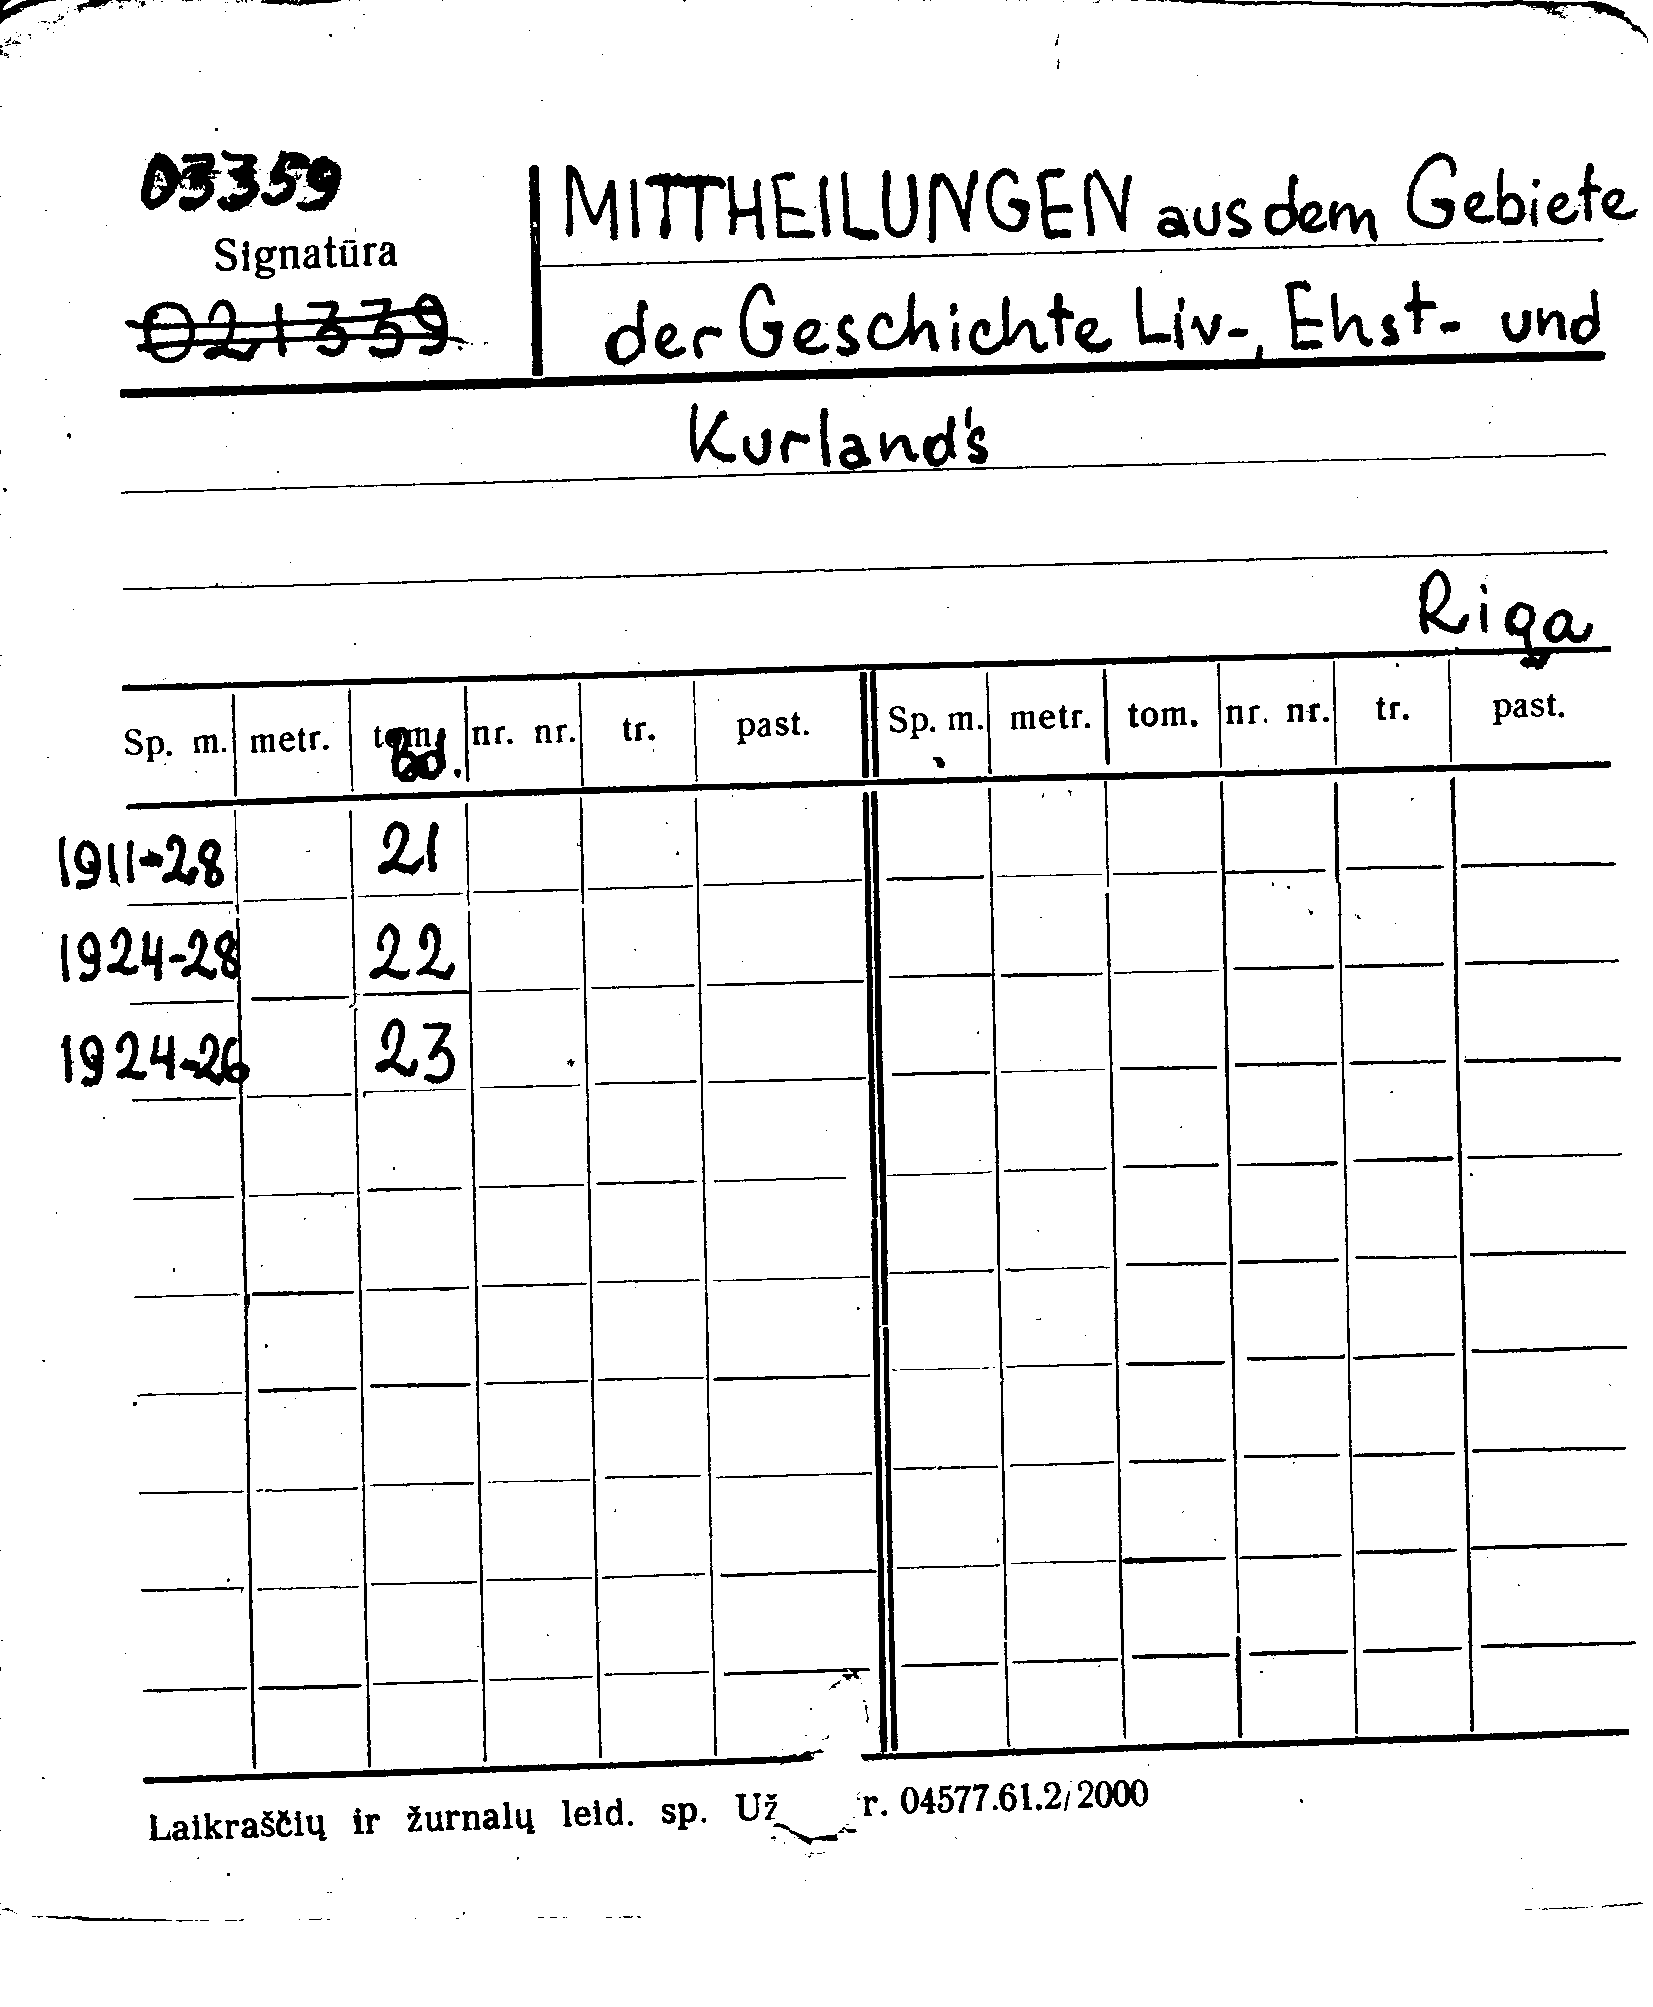 03359
Signatūra
021339
MITTHEILUNGEN aus dem Gebiete
der Geschichte Liv-, Ehst- und
Kurland's
Riga
Sp. m. metr. tom. nr. nr. tr. past. Sp. m. metr. tom. nr. nr. tr. past.
Bd.
1911-28 21
1924-28 22
1924-26 23
Laikraščių ir žurnalų leid. sp. Už r. 04577.61.2/2000